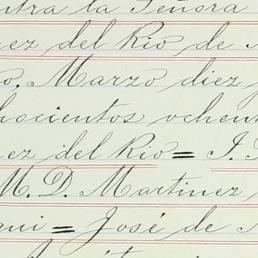 ntra la Señora
nez del Rio de
o. Marzo diez y
hocientos ochent
ez del Rio = J.
M. D. Martinez
qui = José de